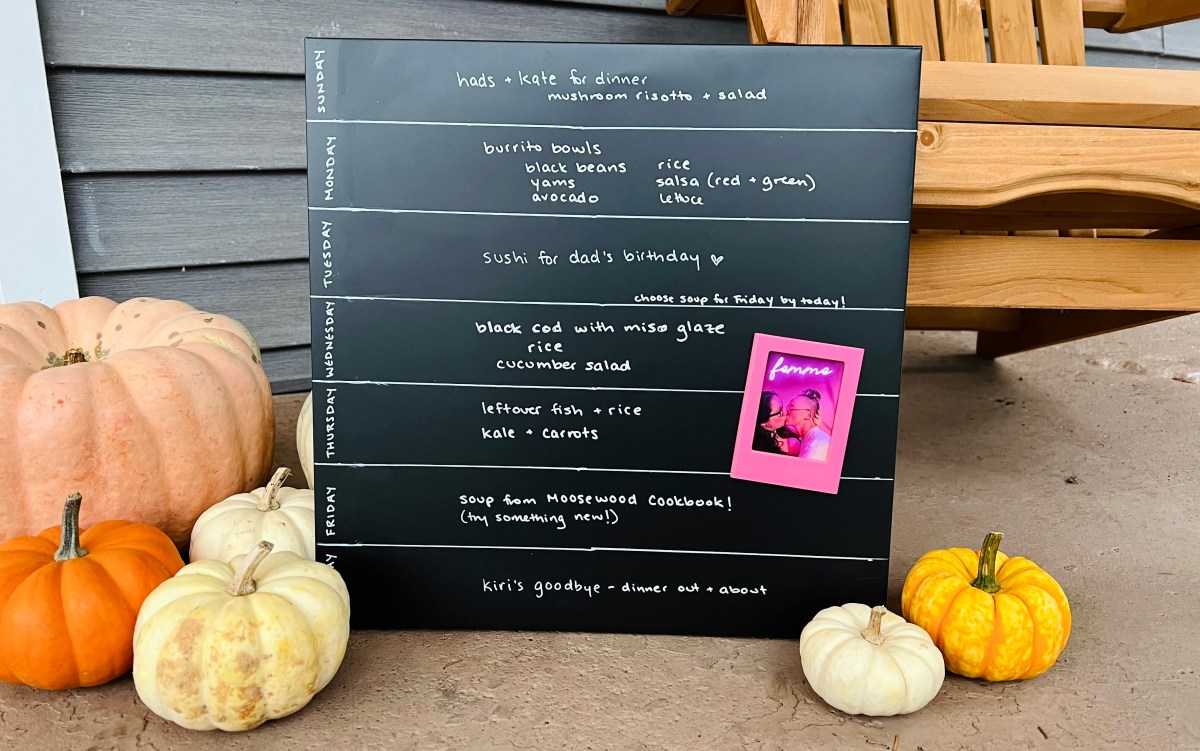 SUNDAY
hads + kate for dinner
mushroom risotto + salad
MONDAY
burrito bowls
black beans rice
yams salsa (red + green)
avocado lettuce
TUESDAY
sushi for dad's birthday ♡
choose soup for Friday by today!
WEDNESDAY
black cod with miso glaze
rice
cucumber salad
femme
THURSDAY
leftover fish + rice
kale + carrots
FRIDAY
soup from Moosewood Cookbook!
(try something new!)
kiri's goodbye - dinner out + about